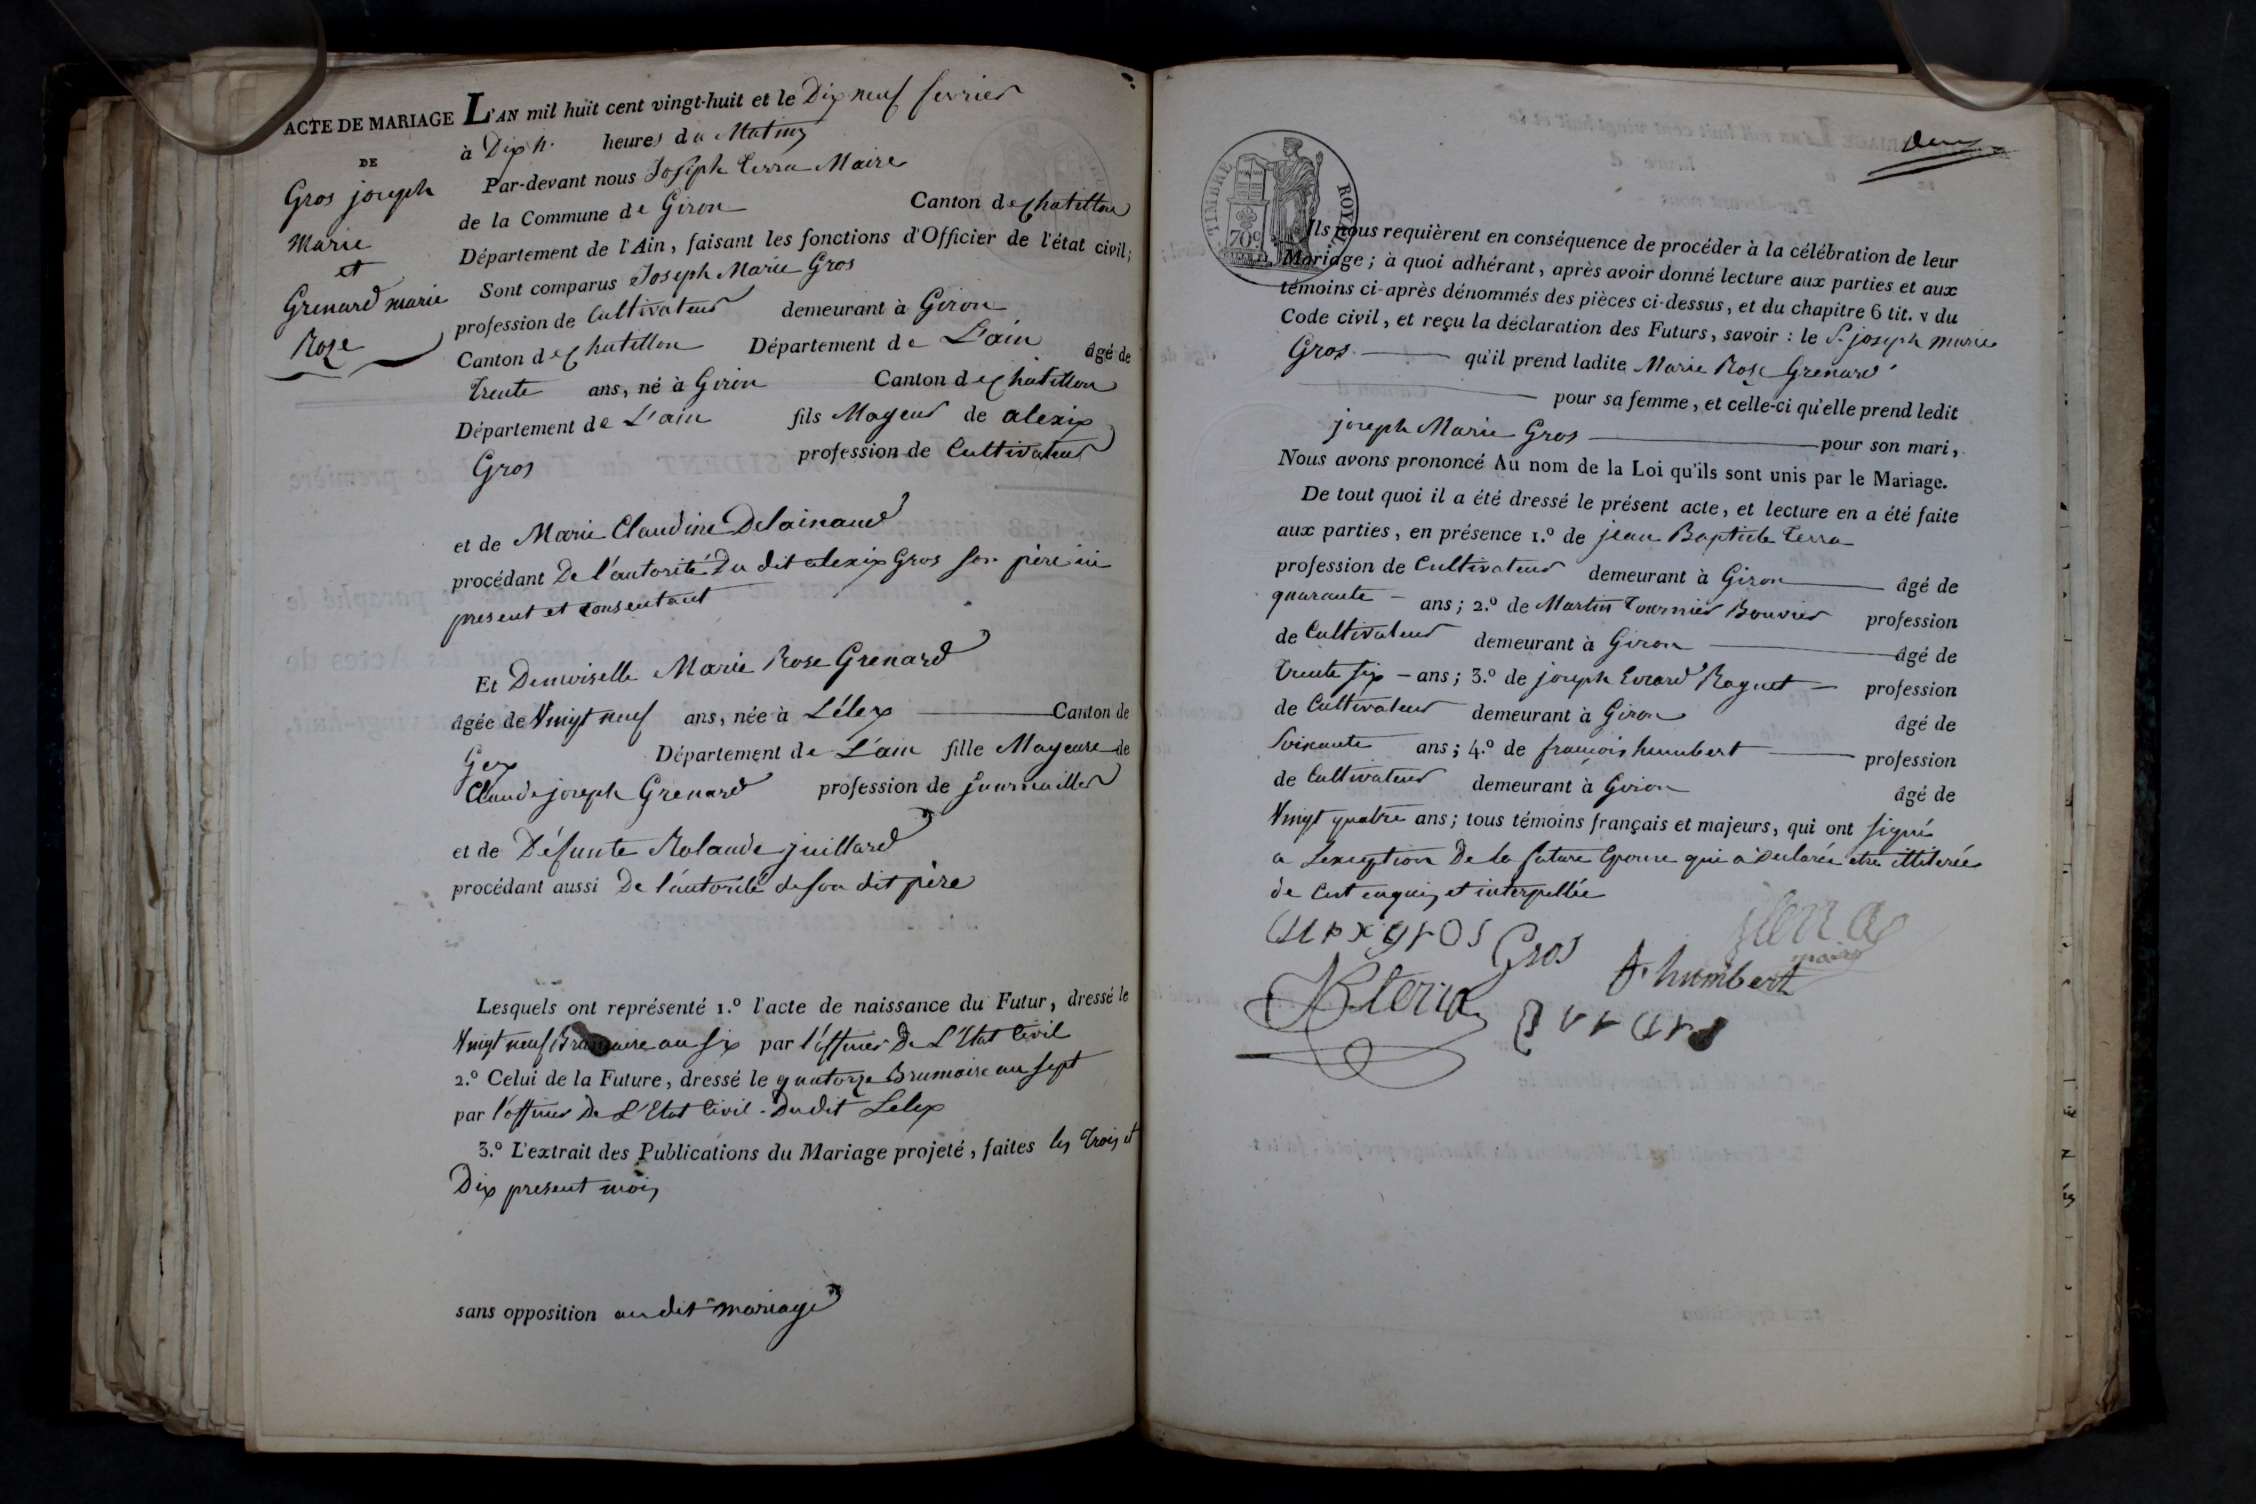 ACTE DE MARIAGE
DE
Gros joseph
Marie
et
Grenard marie
Roze
L'AN mil huit cent vingt-huit et le Dix neuf fevrier
à Dix h. heures du Matin
Par-devant nous Joseph Terra Maire
de la Commune de Giron Canton de Chatillon
Département de l'Ain, faisant les fonctions d'Officier de l'état civil;
Sont comparus Joseph Marie Gros
profession de Cultivateur demeurant à Giron
Canton de Chatillon Département de L'ain âgé de
Trente ans, né à Giron Canton de Chatillon
Département de L'ain fils Mayeur de alexix
Gros profession de Cultivateur
et de Marie Claudine Delainaud
procédant De l'autorité Du dit alexix Gros son père ici
present et consentant
Et Demoiselle Marie Rose Grenard
âgée de Vingt neuf ans, née à Lélex Canton de
Gex Département de L'ain fille Mayeure de
Claude joseph Grenard profession de journaillier
et de Défunte Rolande juillard
procédant aussi De l'autorité de son dit père
Lesquels ont représenté 1.º l'acte de naissance du Futur, dressé le
Vingt neuf Brumaire an six par l'officier De L'Etat Civil
2.º Celui de la Future, dressé le quatorze Brumaire an sept
par l'officier De L'Etat Civil. Du dit Lelex
3.º L'extrait des Publications du Mariage projeté, faites les Trois et
Dix present mois
sans opposition au dit mariage
deux
TIMBRE ROYAL
70 c
Ils nous requièrent en conséquence de procéder à la célébration de leur
Mariage; à quoi adhérant, après avoir donné lecture aux parties et aux
témoins ci-après dénommés des pièces ci-dessus, et du chapitre 6 tit. v du
Code civil, et reçu la déclaration des Futurs, savoir : le S. joseph marie
Gros qu'il prend ladite Marie Rose Grenard
pour sa femme, et celle-ci qu'elle prend ledit
joseph Marie Gros pour son mari,
Nous avons prononcé Au nom de la Loi qu'ils sont unis par le Mariage.
De tout quoi il a été dressé le présent acte, et lecture en a été faite
aux parties, en présence 1.º de jean Baptiste Terra
profession de Cultivateur demeurant à Giron âgé de
quarante ans; 2.º de Martin Tournier Bouvier profession
de Cultivateur demeurant à Giron âgé de
Trente six ans; 3.º de joseph Evrard Raguet profession
de Cultivateur demeurant à Giron âgé de
Soixante ans; 4.º de françois humbert profession
de Cultivateur demeurant à Giron âgé de
Vingt quatre ans; tous témoins français et majeurs, qui ont signé
a Lexception De la future Epouse qui a Declarée etre illiterée
de Cest enquis et interpellée
gros Gros jterra
maire
f. humbert
JB terra evrard